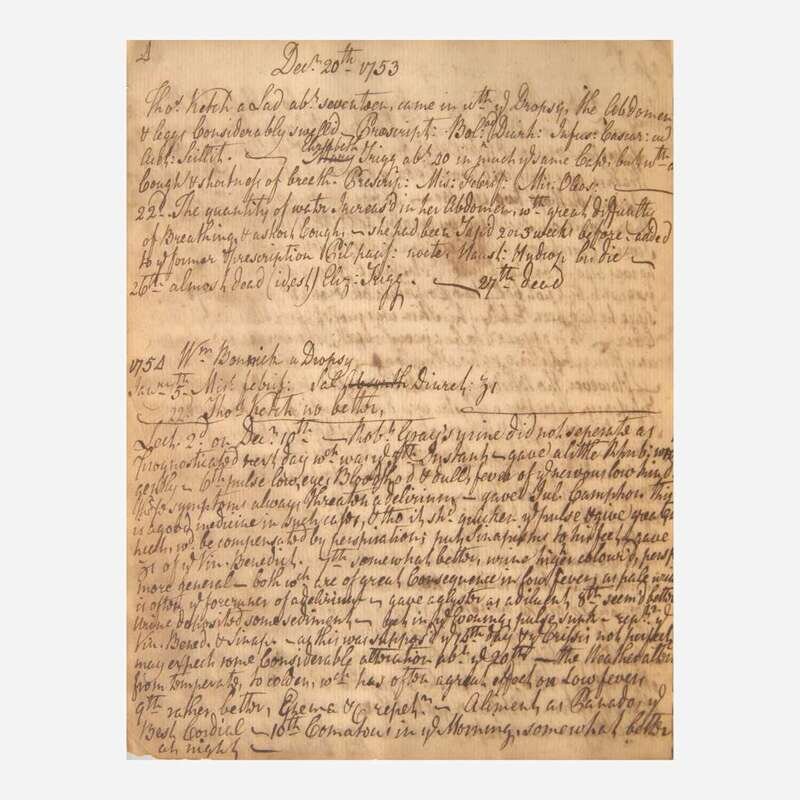 4
Decr 20th 1753
Thos Ketch a Lad abt seventeen, came in wth ye Dropsy, the Abdomen
& Leggs Considerably swelled Prescript: Diureh: Infus:
Elizabeth
Trigg abt 20 in much ye same Case but wth a
Cough & shortness of breeth. Prescrip: Mis: Febrif:
22d The quantity of water Increas'd in her Abdomen, wth great difficulty
of Breathing, & a short Cough, she had been Tap'd 2 or 3 weeks before. added
to ye former prescription Pil pacif: nocte, Haust: Hydrop bis die
26th almost dead (idest) Eliz: Trigg. 27th dead
1754 Wm a Dropsy
5th Mist: febrif: Sal Absynth Diuret: ʒi
22 Thos Ketch no better,
Lect. 2d on Decr 10th Robt Gray's urine did not seperate as
Prognosticated next day wch was ye Instant gave a little
gently 6th pulse low, eyes Bloodshod & dull, fever of ye nervous low kind
these symptoms always threaten a delirium gave Jul: Camphor this
is a good medicine in such cases, & tho it shd quicken ye pulse & give great
heat, wd be compensated by perspiration; put Sinapisms to his feet gave
ʒi of ye Vin: Benedict. 7th somewhat better, urine higher colour'd, persp
more general both wch are of great Consequence in low fevers, as pale urine
is often ye forerunner of a delirium gave a glyster as a diluent, 8th seem'd better
Urine deposited some sediment yet in ye Evening, pulse sunk repd ye
Vin. Bened. & sinap. as this was suppos'd ye 14th day & ye Crisis not perfect
may expect some Considerable alteration abt ye 20th the Weather alter
from temperate, to colder, wch has often a great effect on Low fevers
9th rather better, Enema &c repetr Aliment as Panado, ye
Best Cordial 10th Comatous in ye Morning, somewhat better
at night